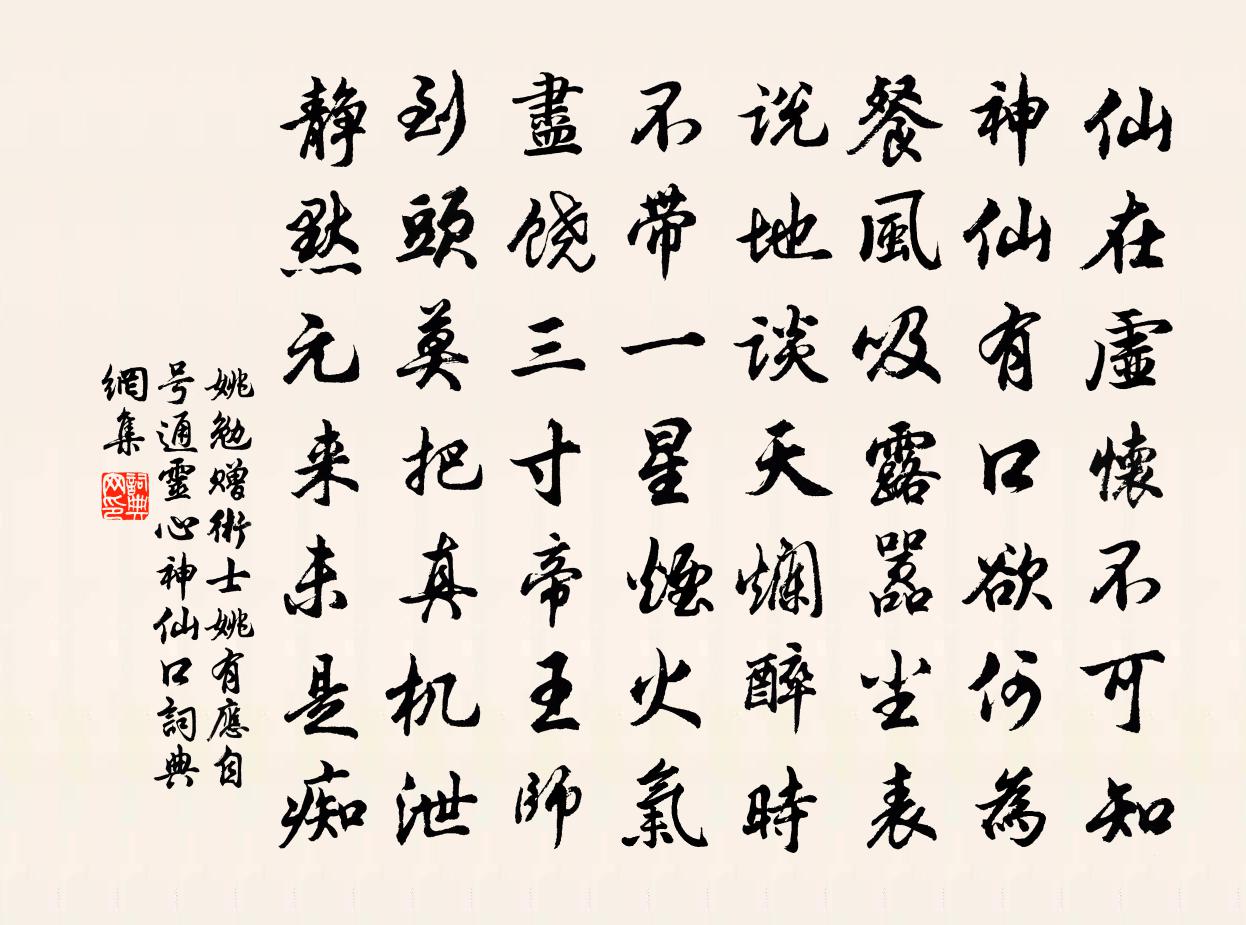 仙在虛懷不可知
神仙有口欲何為
餐風吸露囂尘表
说地谈天爛醉時
不带一星煙火氣
盡饶三寸帝王師
到頭莫把真机泄
静默元来未是痴
姚勉赠術士姚有應自
号通靈心神仙口詞典
網集
詞典网印